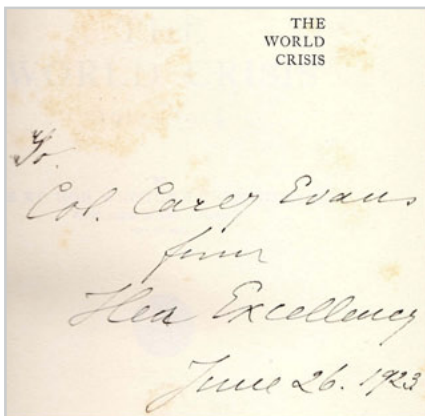 THE
WORLD
CRISIS
To
Col. Carey Evans
from
Her Excellency
June 26. 1923